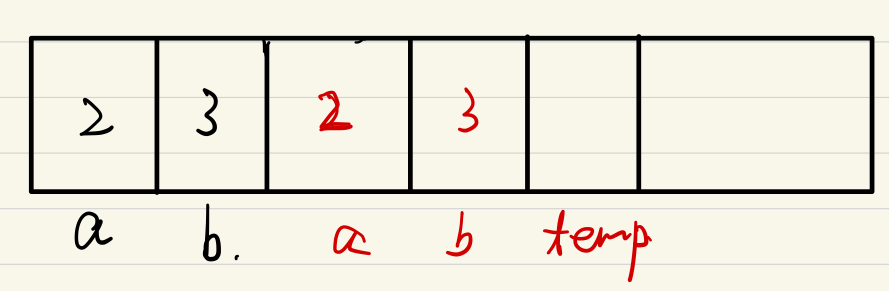 2 3 2 3
a b. a b temp